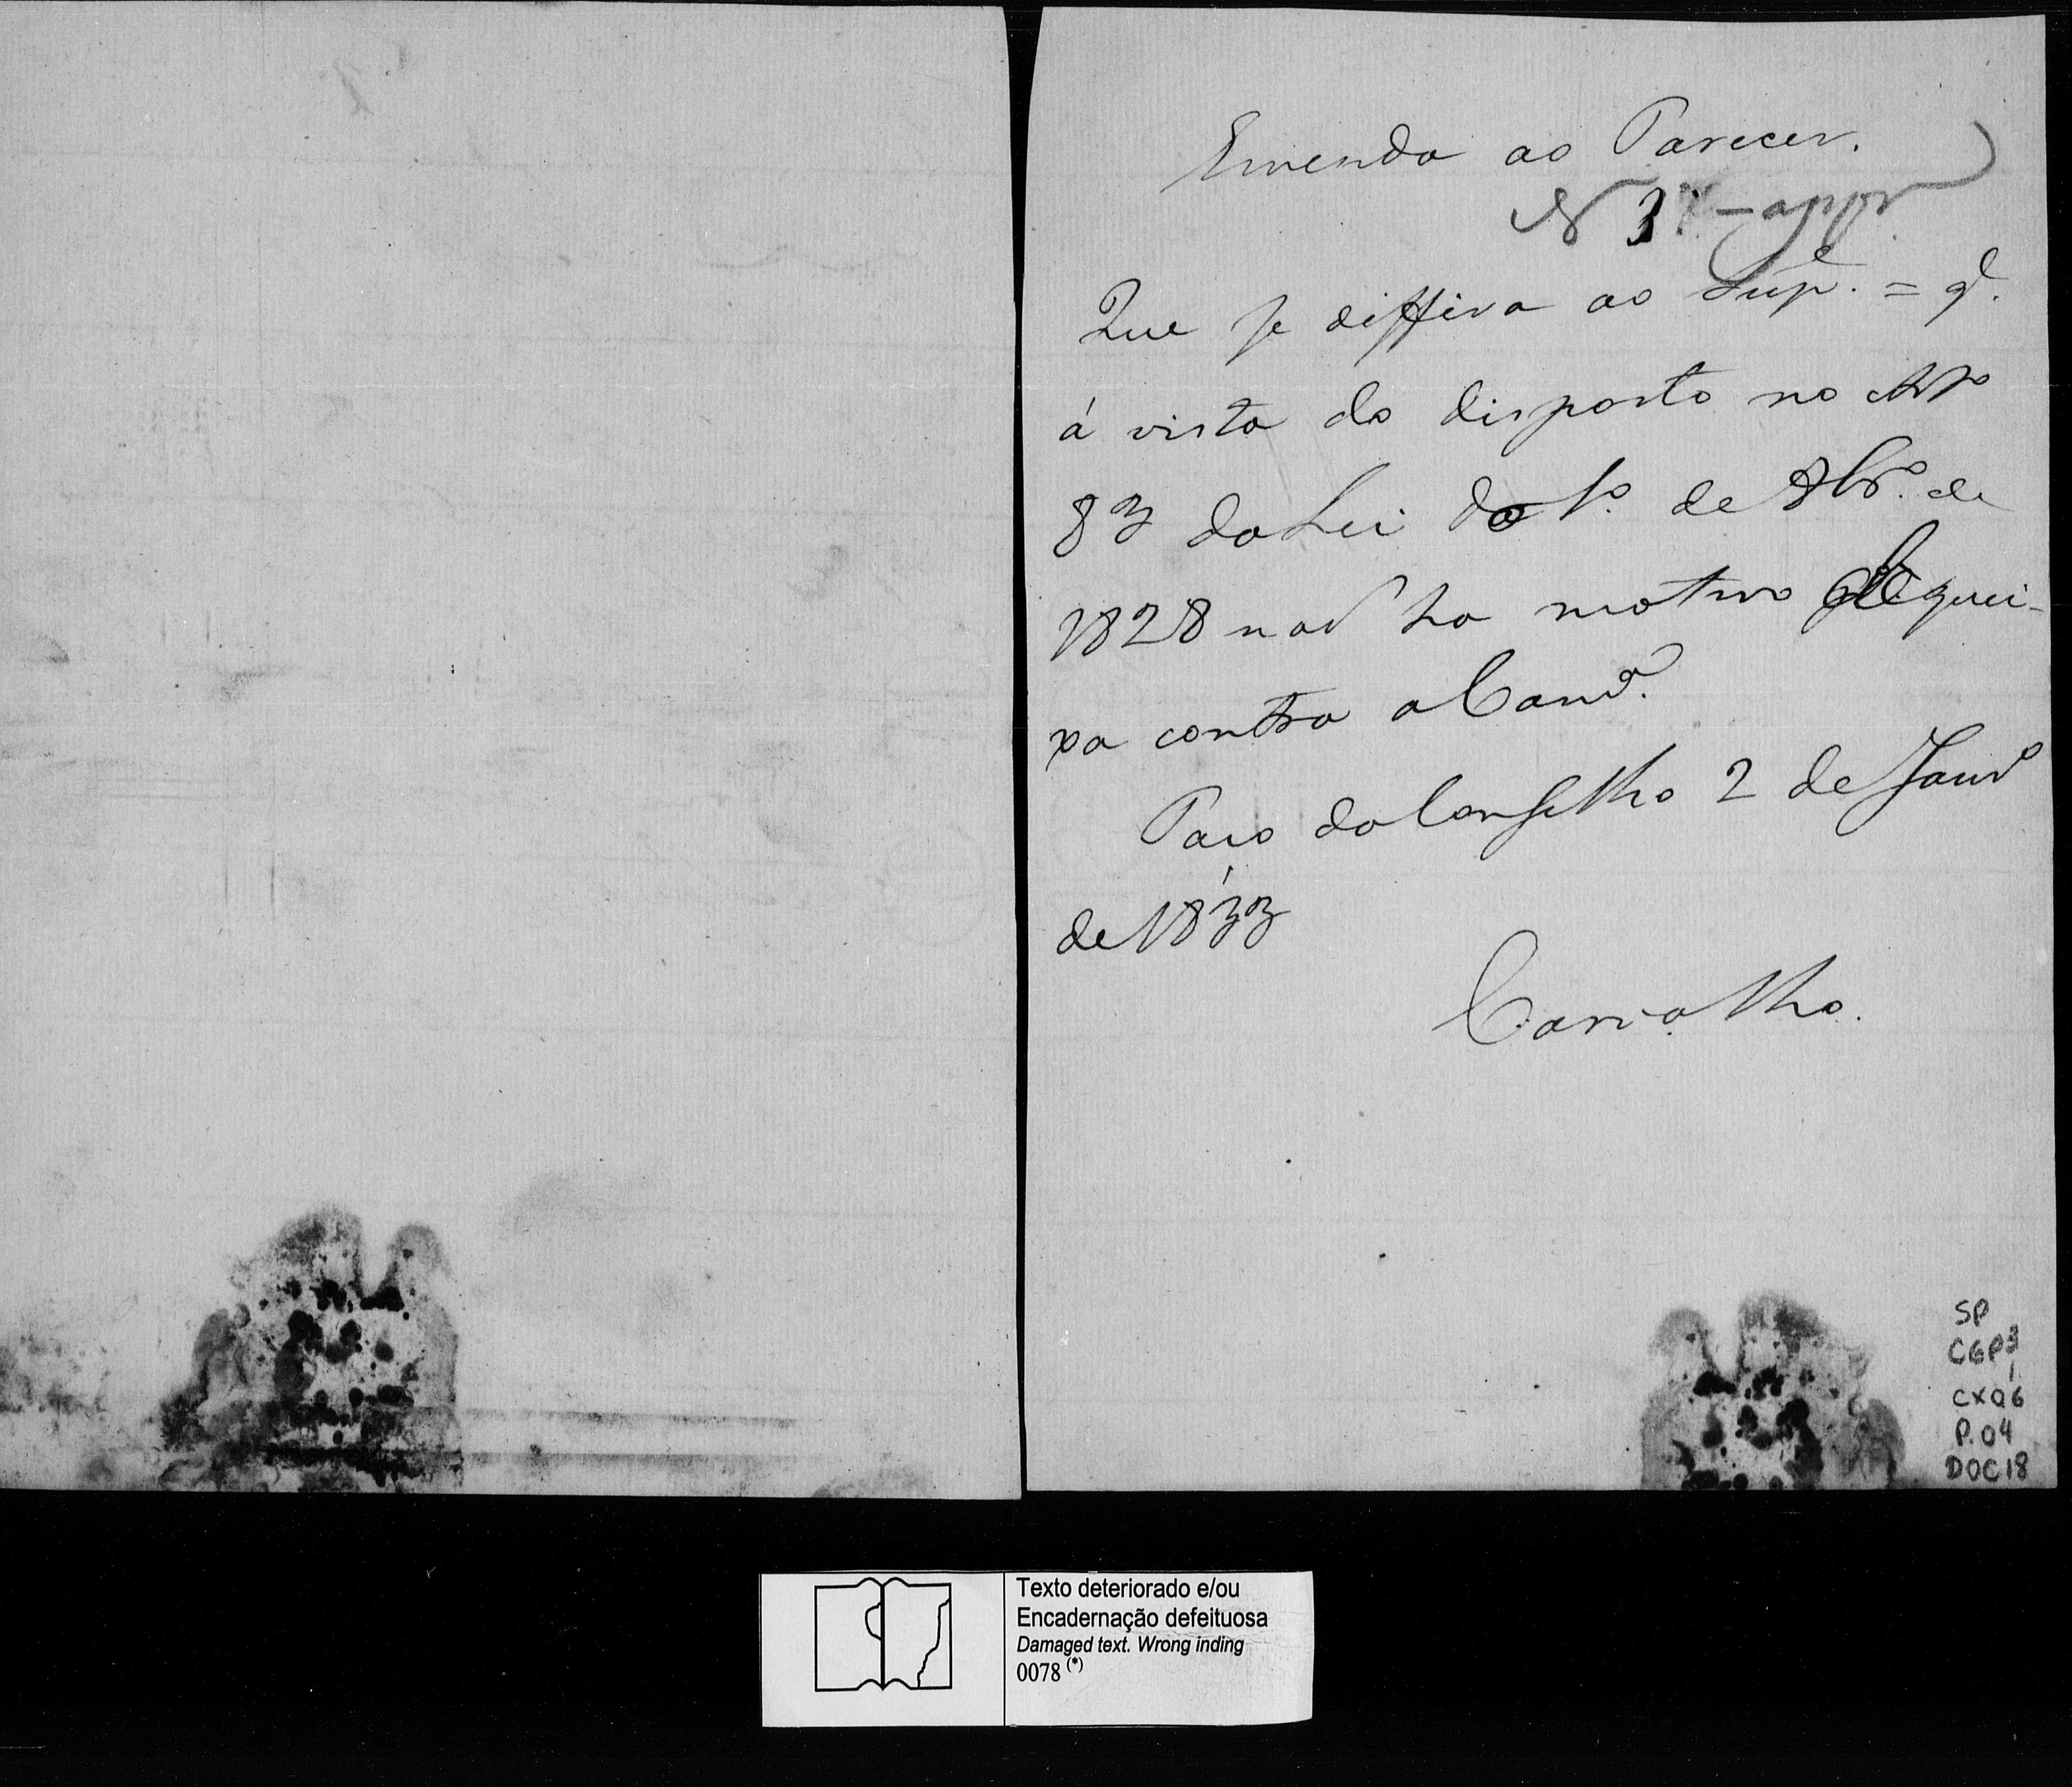 Emenda ao Parecer.
N 3 - appr
Que se diffira ao Sup.e = q.
á vista do disposto no Art.o
83 da Lei do 1.o de 8br.o de
1828 naõ ha motivo de quei-
xa contra a Camr.a
Paço do Conselho 2 de Janr.o
de 1833
Carvalho.
SP
CGP3
CX06
P.04
DOC18
Texto deteriorado e/ou
Encadernação defeituosa
Damaged text. Wrong inding
0078 (*)